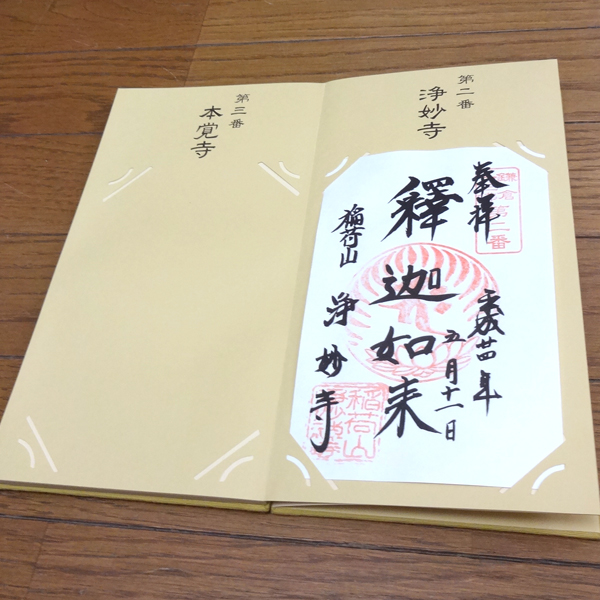 第二番
浄妙寺
奉拝
鎌倉第二番
平成廿四年
五月十一日
釋迦如来
稲荷山
浄妙寺
稲荷山
浄妙寺
第三番
本覚寺